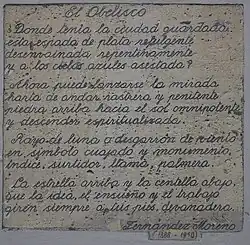 El Obelisco
¿Donde tenía la ciudad guardada
esta espada de plata refulgente
desenvainada repentinamente
y a los cielos azules asestada?
Ahora puede lanzarse la mirada
harta de andar rastrera y penitente
piedra arriba hacia el sol omnipotente
y descender espiritualizada.
Rayo de luna o desgarrón de viento
en símbolo cuajado y monumento,
índice, surtidor, llama, palmera.
La estrella arriba y la centella abajo,
que la idea, el ensueño y el trabajo
giren siempre a tus pies, devanadera.
Fernández Moreno
(1886 - 1950)